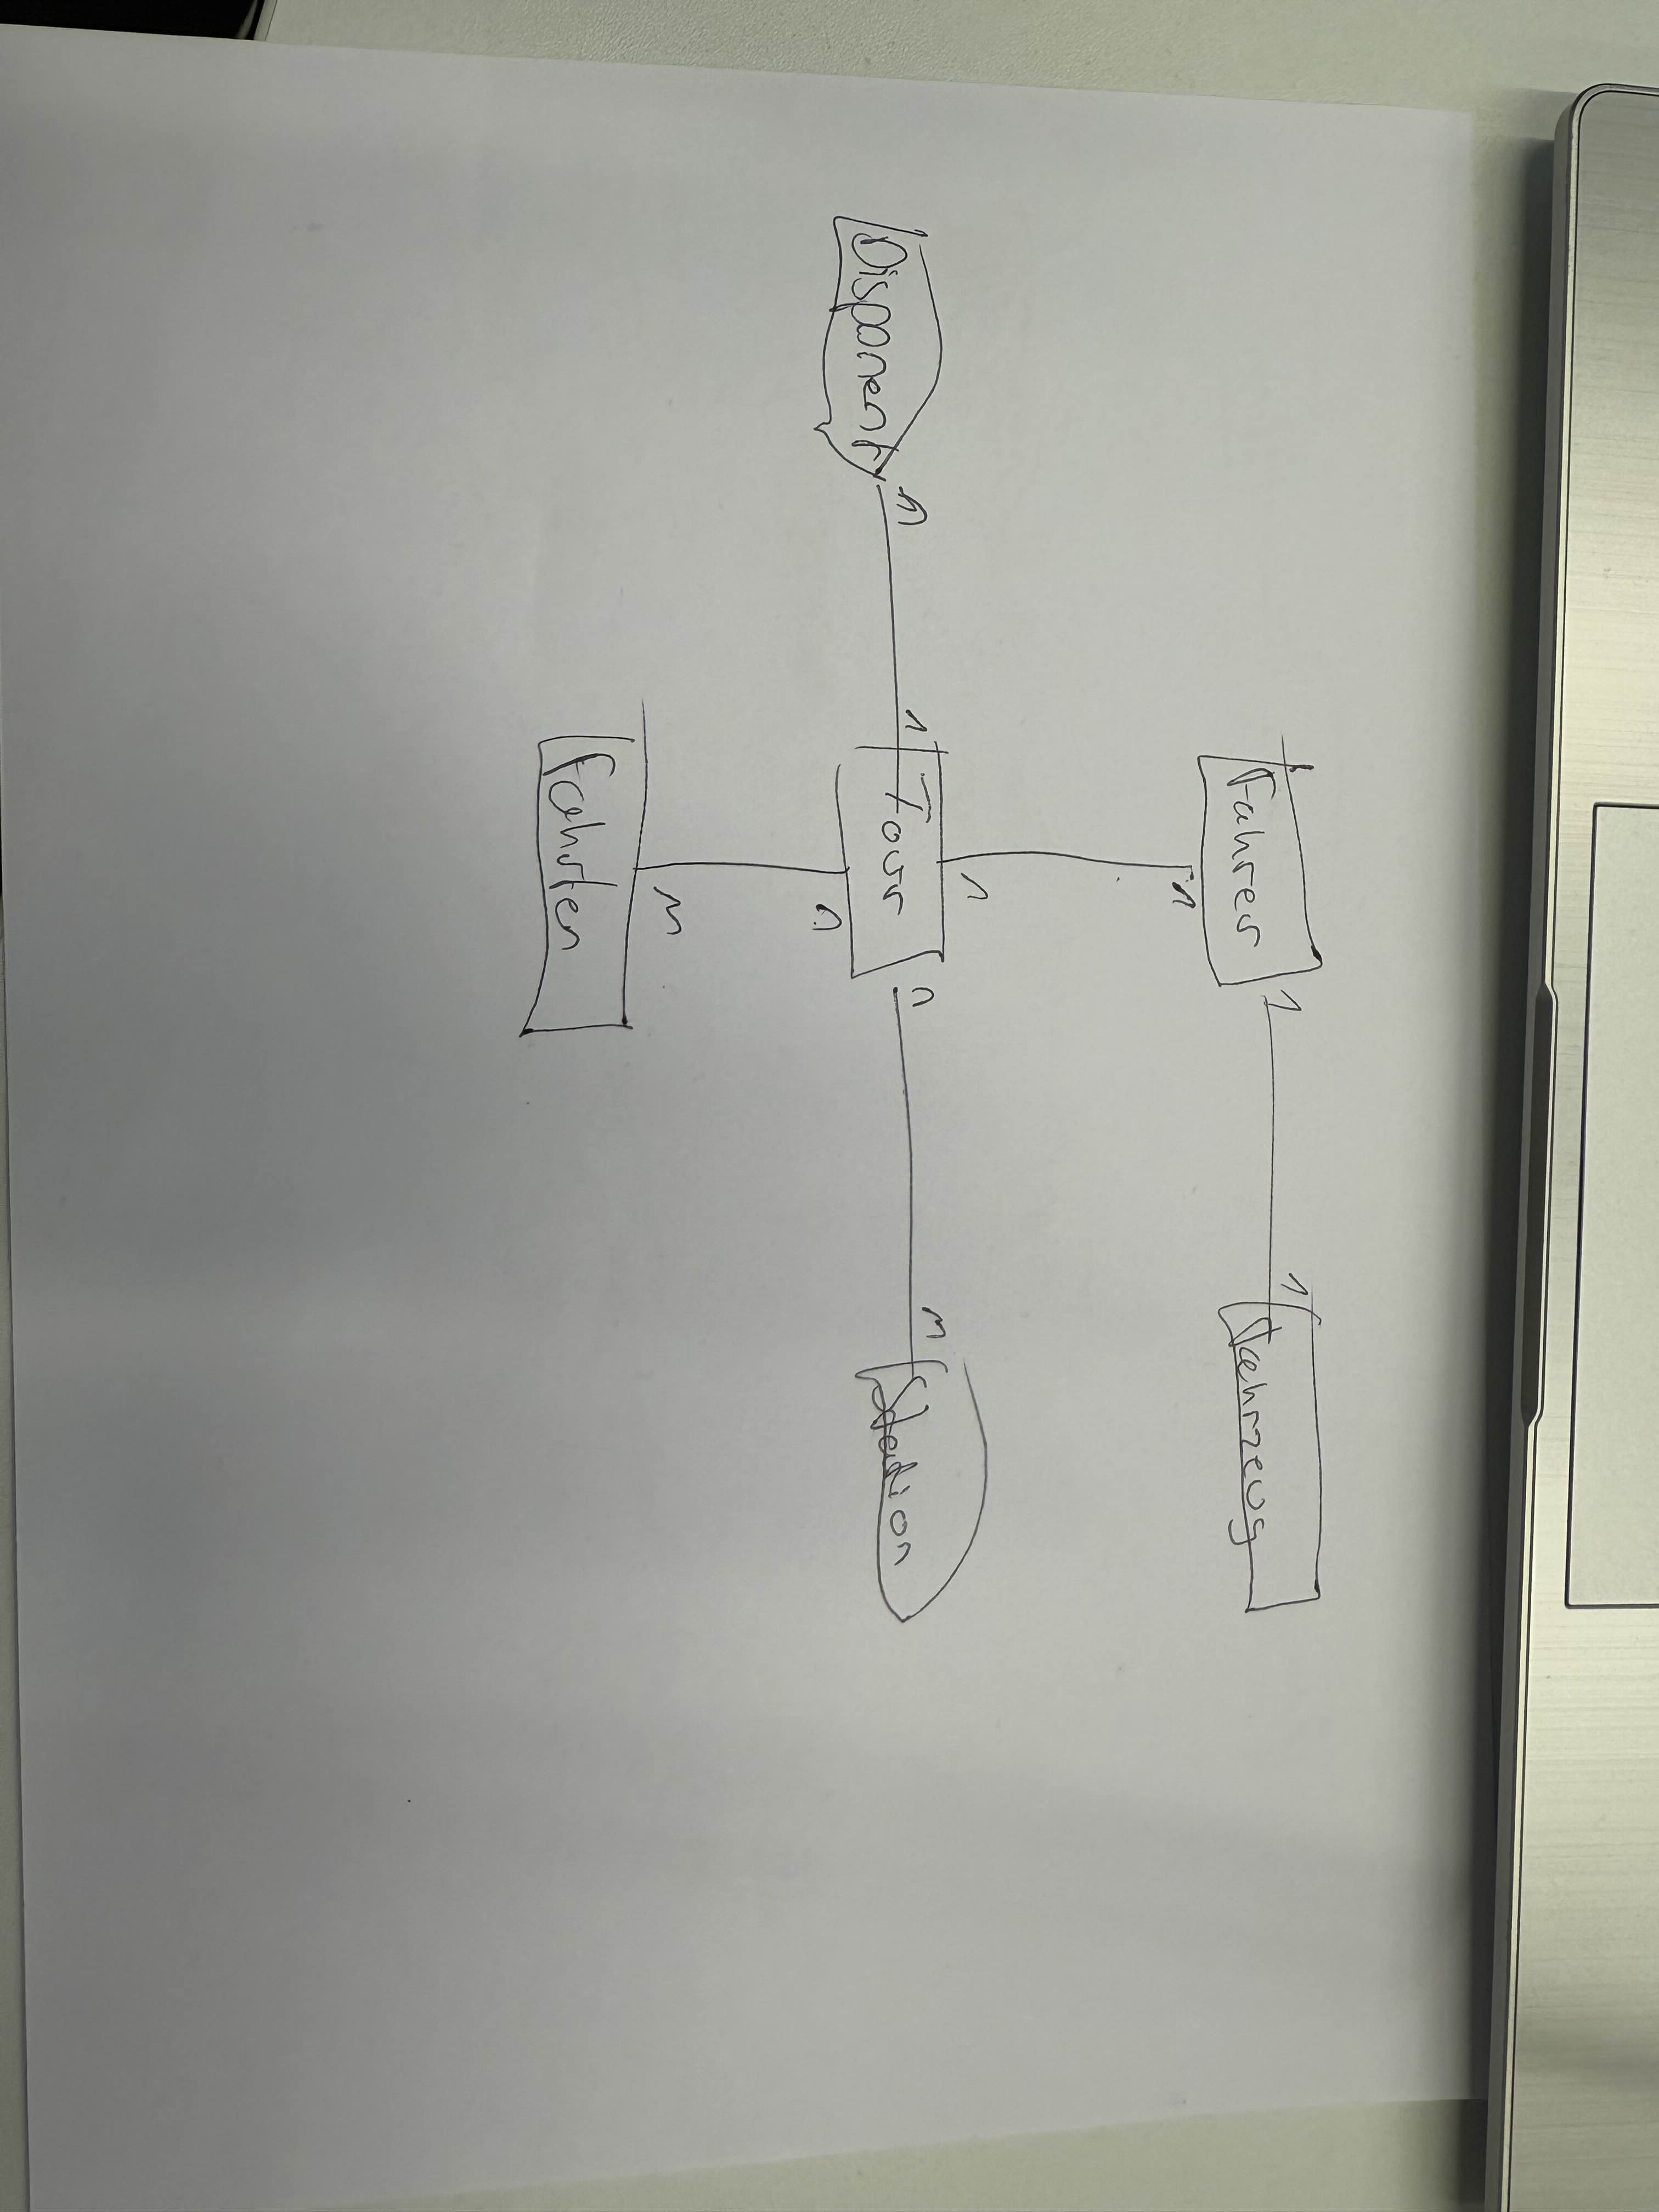 Fahrer 1 1 Fahrzeug
1
1
Disponent n 1 Tour n m Station
n
m
Fahrten